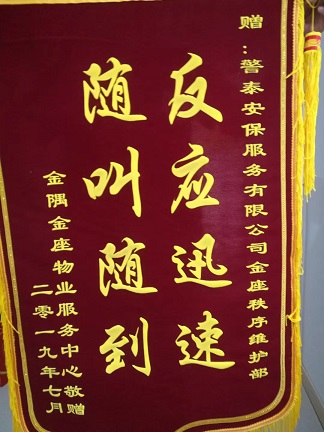 赠：警泰安保服务有限公司金座秩序维护部
反应迅速
随叫随到
金隅金座物业服务中心敬赠
二零一九年七月